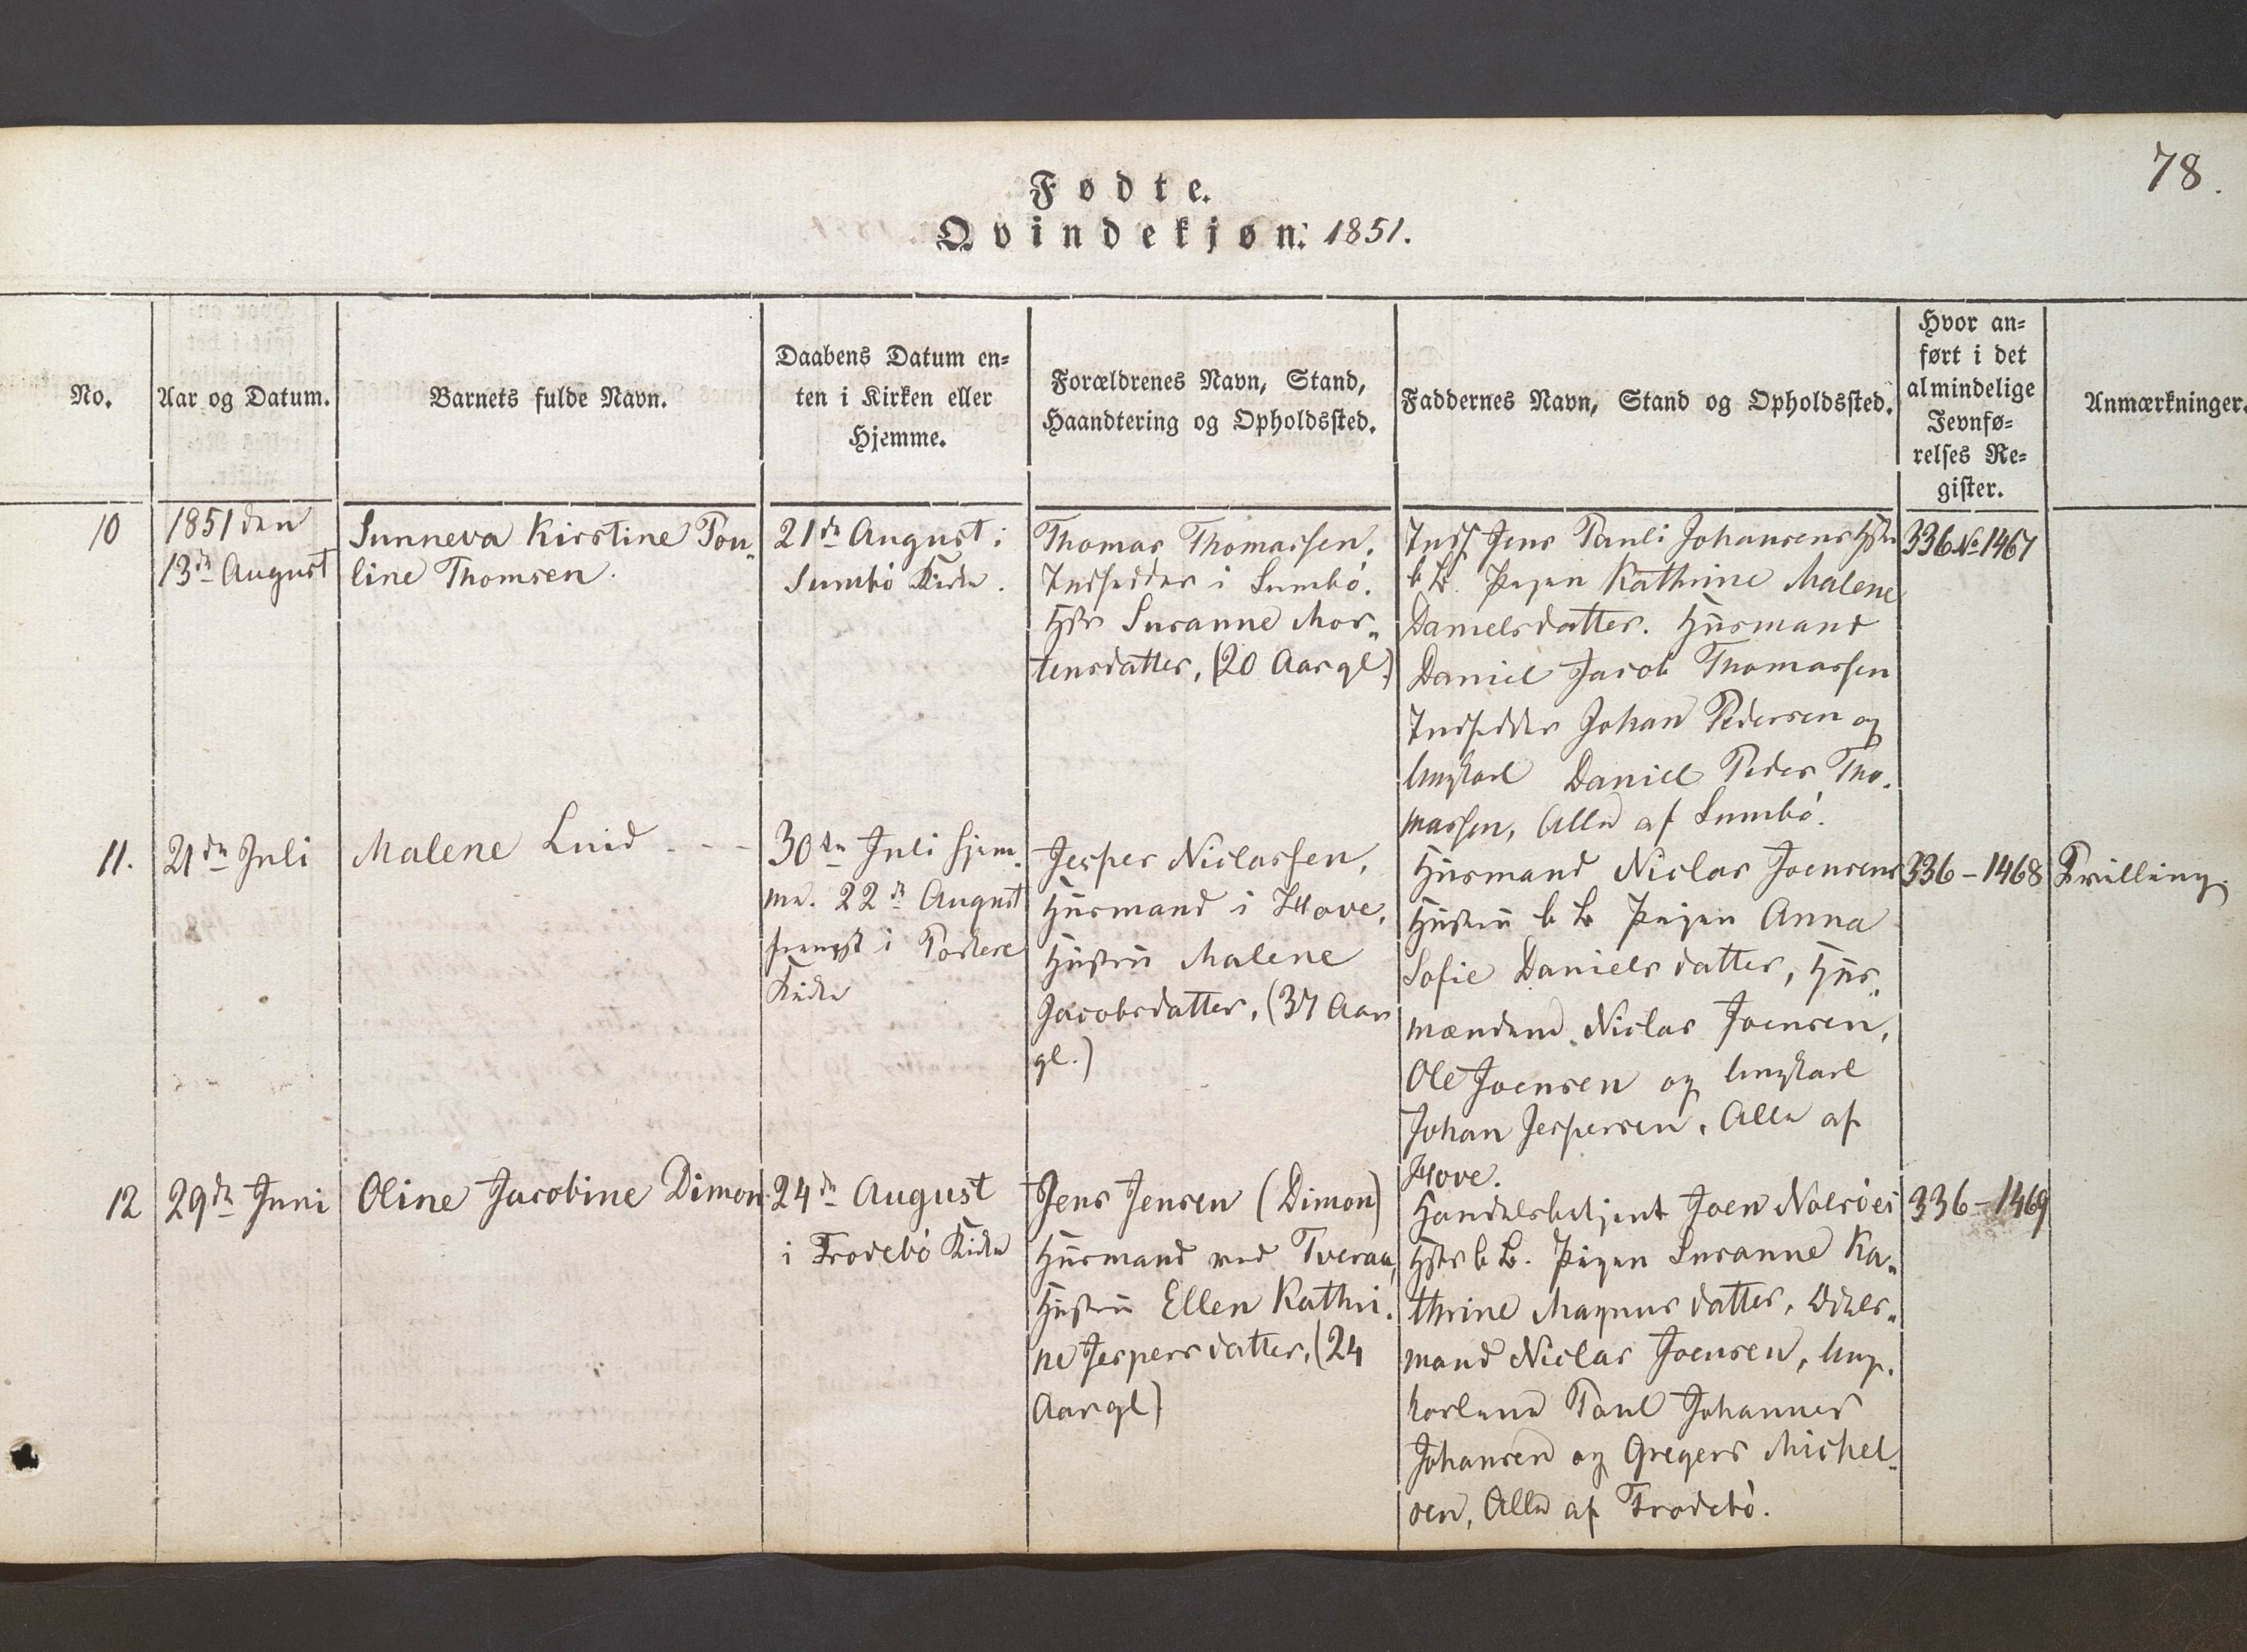 78.
Fødte.
Qvindekjøn: 1851.
No.
Aar og Datum.
Barnets fulde Navn.
Daabens Datum en=
ten i Kirken eller
Hjemme.
Forældrenes Navn, Stand,
Haandtering og Opholdssted.
Faddernes Navn, Stand og Opholdssted.
Hvor an=
ført i det
almindelige
Jevnfø=
relses Re=
gister.
Anmærkninger.
10
1851 den
13de August
Sunneva Kirstine Pou„
line Thomsen.
21de August i
Sumbø Kirke.
Thomas Thomassen.
Indsidder i Sumbø.
Hstr Susanne Mor„
tensdatter, (20 Aar gl.)
Inds. Jens Pauli Johansens Hstr
b B. Pigen Kathrine Malene
Danielsdatter. Husmand
Daniel Jacob Thomassen
Indsidder Johan Pedersen og
Ungkarl Daniel Peder Tho„
massen, Alle af Sumbø.
336 No 1467
11.
21de Juli
Malene Luid - - -
30te Juli hjem„
me. 22de August
fremst i Porkere
Kirke
Jesper Niclassen,
Husmand i Hove,
Hustru Malene
Jacobsdatter, (37 Aar
gl.)
Husmand Niclas Joensens
Hustru b B Pigen Anna
Sofie Danielsdatter, Hus„
mændene Niclas Joensen,
Ole Joensen og Ungkarl
Johan Jespersen, Alle af
Hove.
336 - 1468
Tvilling.
12
29de Juni
Oline Jacobine Dimon.
24de August
i Frodebø Kirke
Jens Jensen (Dimon)
Husmand ved Tveraa,
Hustru Ellen Kathri„
ne Jespersdatter, (24
Aar gl)
Handelsbetjent Joen Nolsøes
Hstr b B. Pigen Susanne Ka„
thrine Magnusdatter, Odels„
mand Niclas Joensen, Ung„
karlene Poul Johannes
Johansen og Gregers Michel„
sen, Alle af Frodebø.
336 - 1469